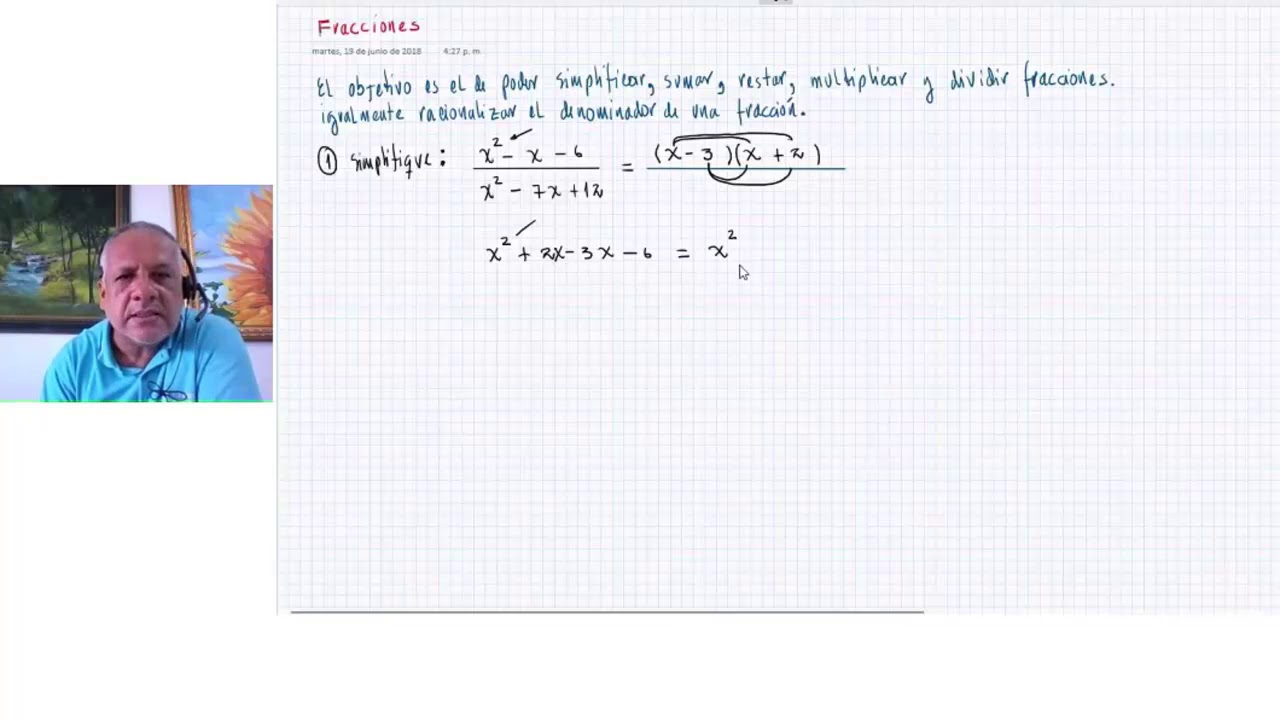 Fracciones
martes, 19 de junio de 2018 4:27 p. m.
El objetivo es el de poder simplificar, sumar, restar, multiplicar y dividir fracciones.
igualmente racionalizar el denominador de una fracción.
① simplifique: x² - x - 6 / x² - 7x + 12 = (x - 3)(x + 2)
x² + 2x - 3x - 6 = x²